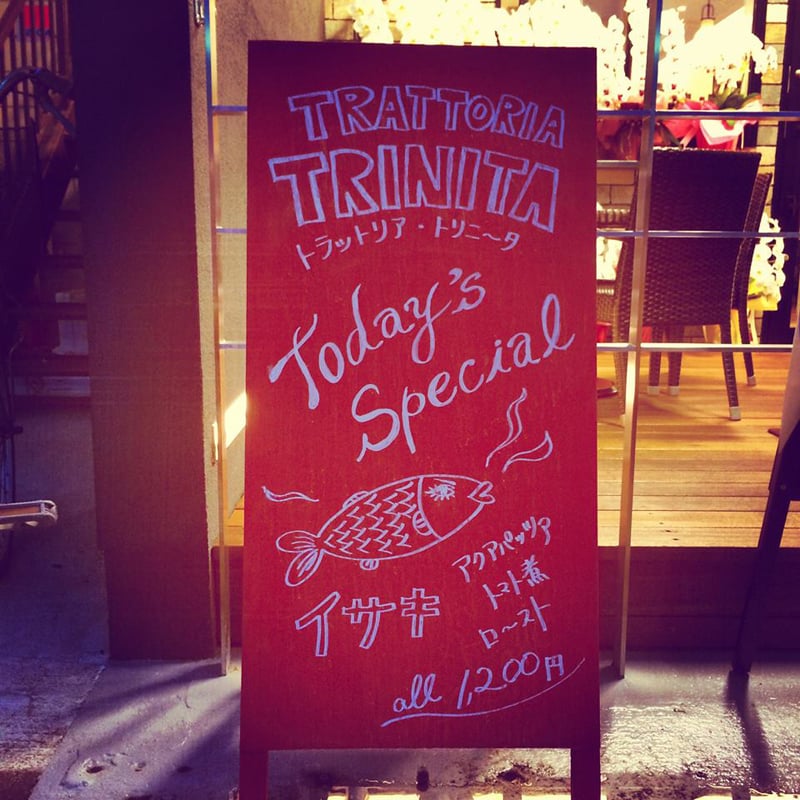 TRATTORIA
TRINITA
トラットリア・トリニ〜タ
Today's
Special
イサキ
アクアパッツァ
トマト煮
ロ〜スト
all 1,200円